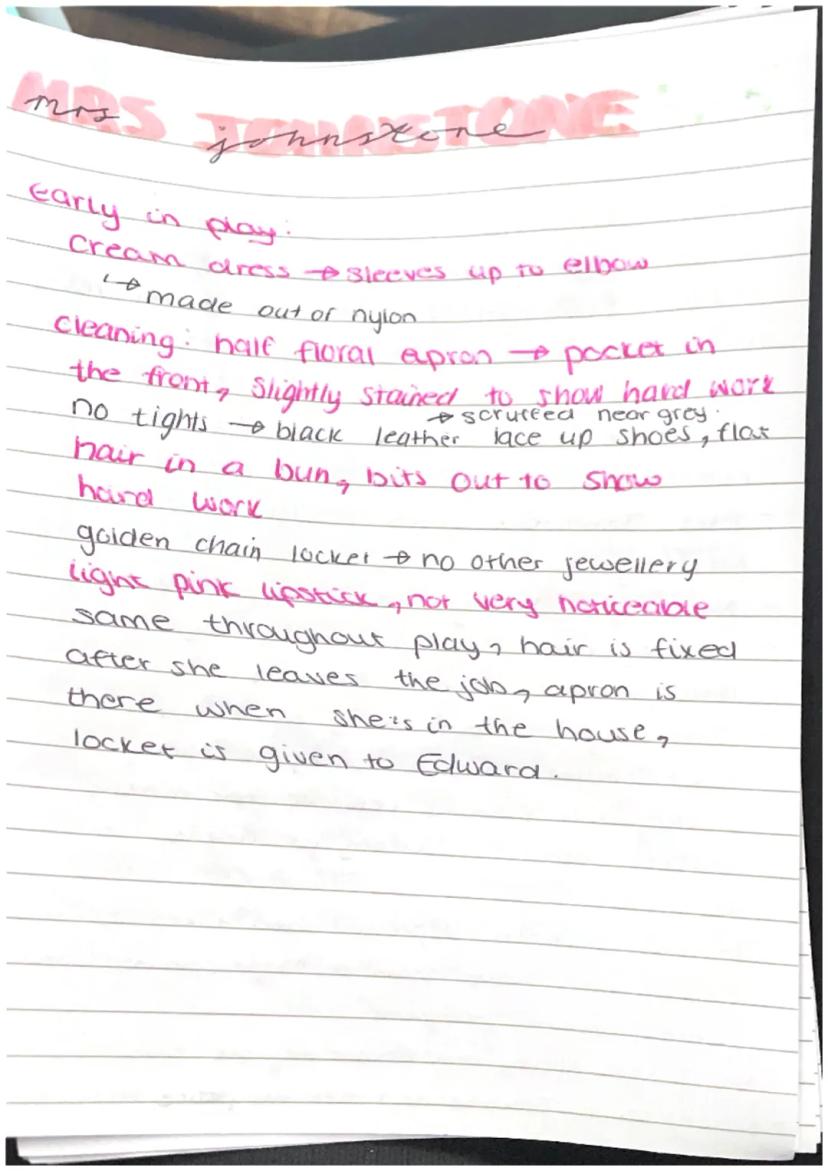 MRS JOHNSTONE
mrs johnstone
Early in play:
Cream dress → sleeves up to elbow
↳ made out of nylon
cleaning: half floral apron → pocket in
the front, slightly stained to show hard work
→ scruffed near grey.
no tights → black leather lace up shoes, flat
hair in a bun, bits out to show
hard work
golden chain locket → no other jewellery
light pink lipstick, not very noticeable
same throughout play, hair is fixed
after she leaves the job, apron is
there when she's in the house,
locket is given to Edward.